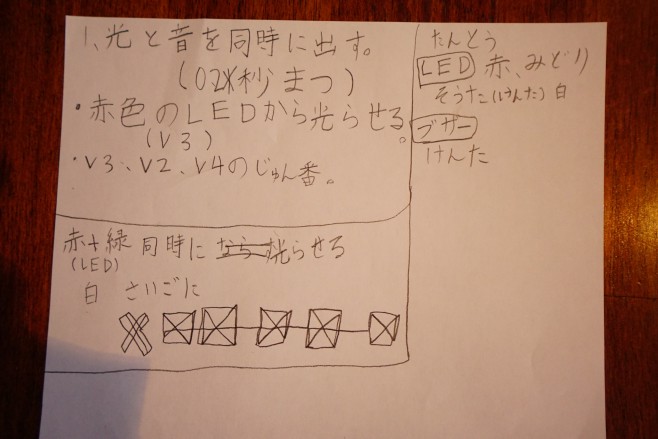 1、光と音を同時に出す。
(02秒まつ)
・赤色のLEDから光らせる。
(V3)
・V3、V2、V4のじゅん番。
赤+緑 同時に 光らせる
(LED)
白 さいごに
たんとう
LED 赤、みどり
そうた(けんた)白
ブザー
けんた